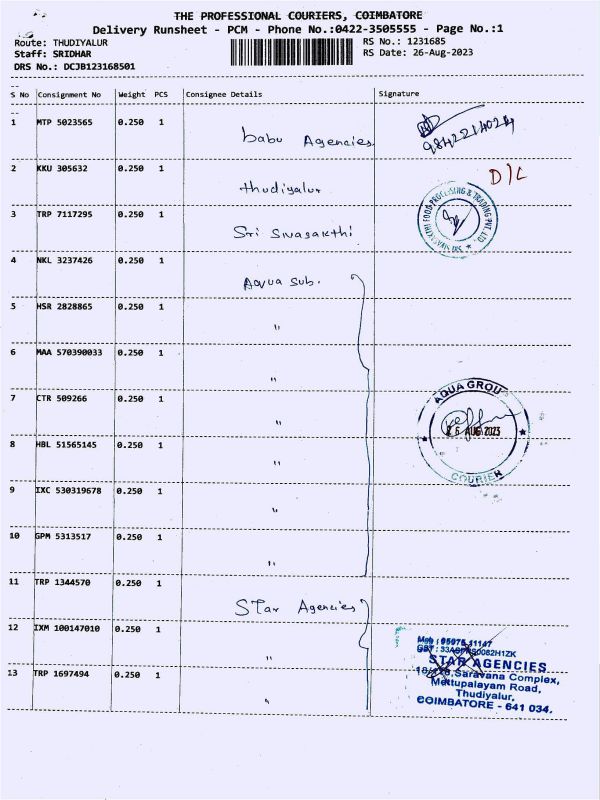 THE PROFESSIONAL COURIERS, COIMBATORE
Delivery Runsheet - PCM - Phone No.:0422-3505555 - Page No.:1
Route: THUDIYALUR
RS No.: 1231685
Staff: SRIDHAR
RS Date: 26-Aug-2023
DRS No.: DCJB123168501
S No Consignment No Weight PCS Consignee Details Signature
1 MTP 5023565 0.250 1 babu Agencies 9842214024
2 KKU 305632 0.250 1 thudiyalur D/L
3 TRP 7117295 0.250 1 Sri Sivasakthi
FOOD PROCESSING & TRADING PVT. LTD
4 NKL 3237426 0.250 1 Aqua Sub.
5 HSR 2828865 0.250 1 "
6 MAA 570390033 0.250 1 "
7 CTR 509266 0.250 1 "
AQUA GROUP
26 AUG 2023
COURIER
8 HBL 51565145 0.250 1 "
9 IXC 530319678 0.250 1 "
10 GPM 5313517 0.250 1 "
11 TRP 1344570 0.250 1 Star Agencies
12 IXM 100147010 0.250 1 "
13 TRP 1697494 0.250 1 "
Mob : 95975 11147
STAR AGENCIES
Saravana Complex,
Mettupalayam Road,
Thudiyalur,
COIMBATORE - 641 034.